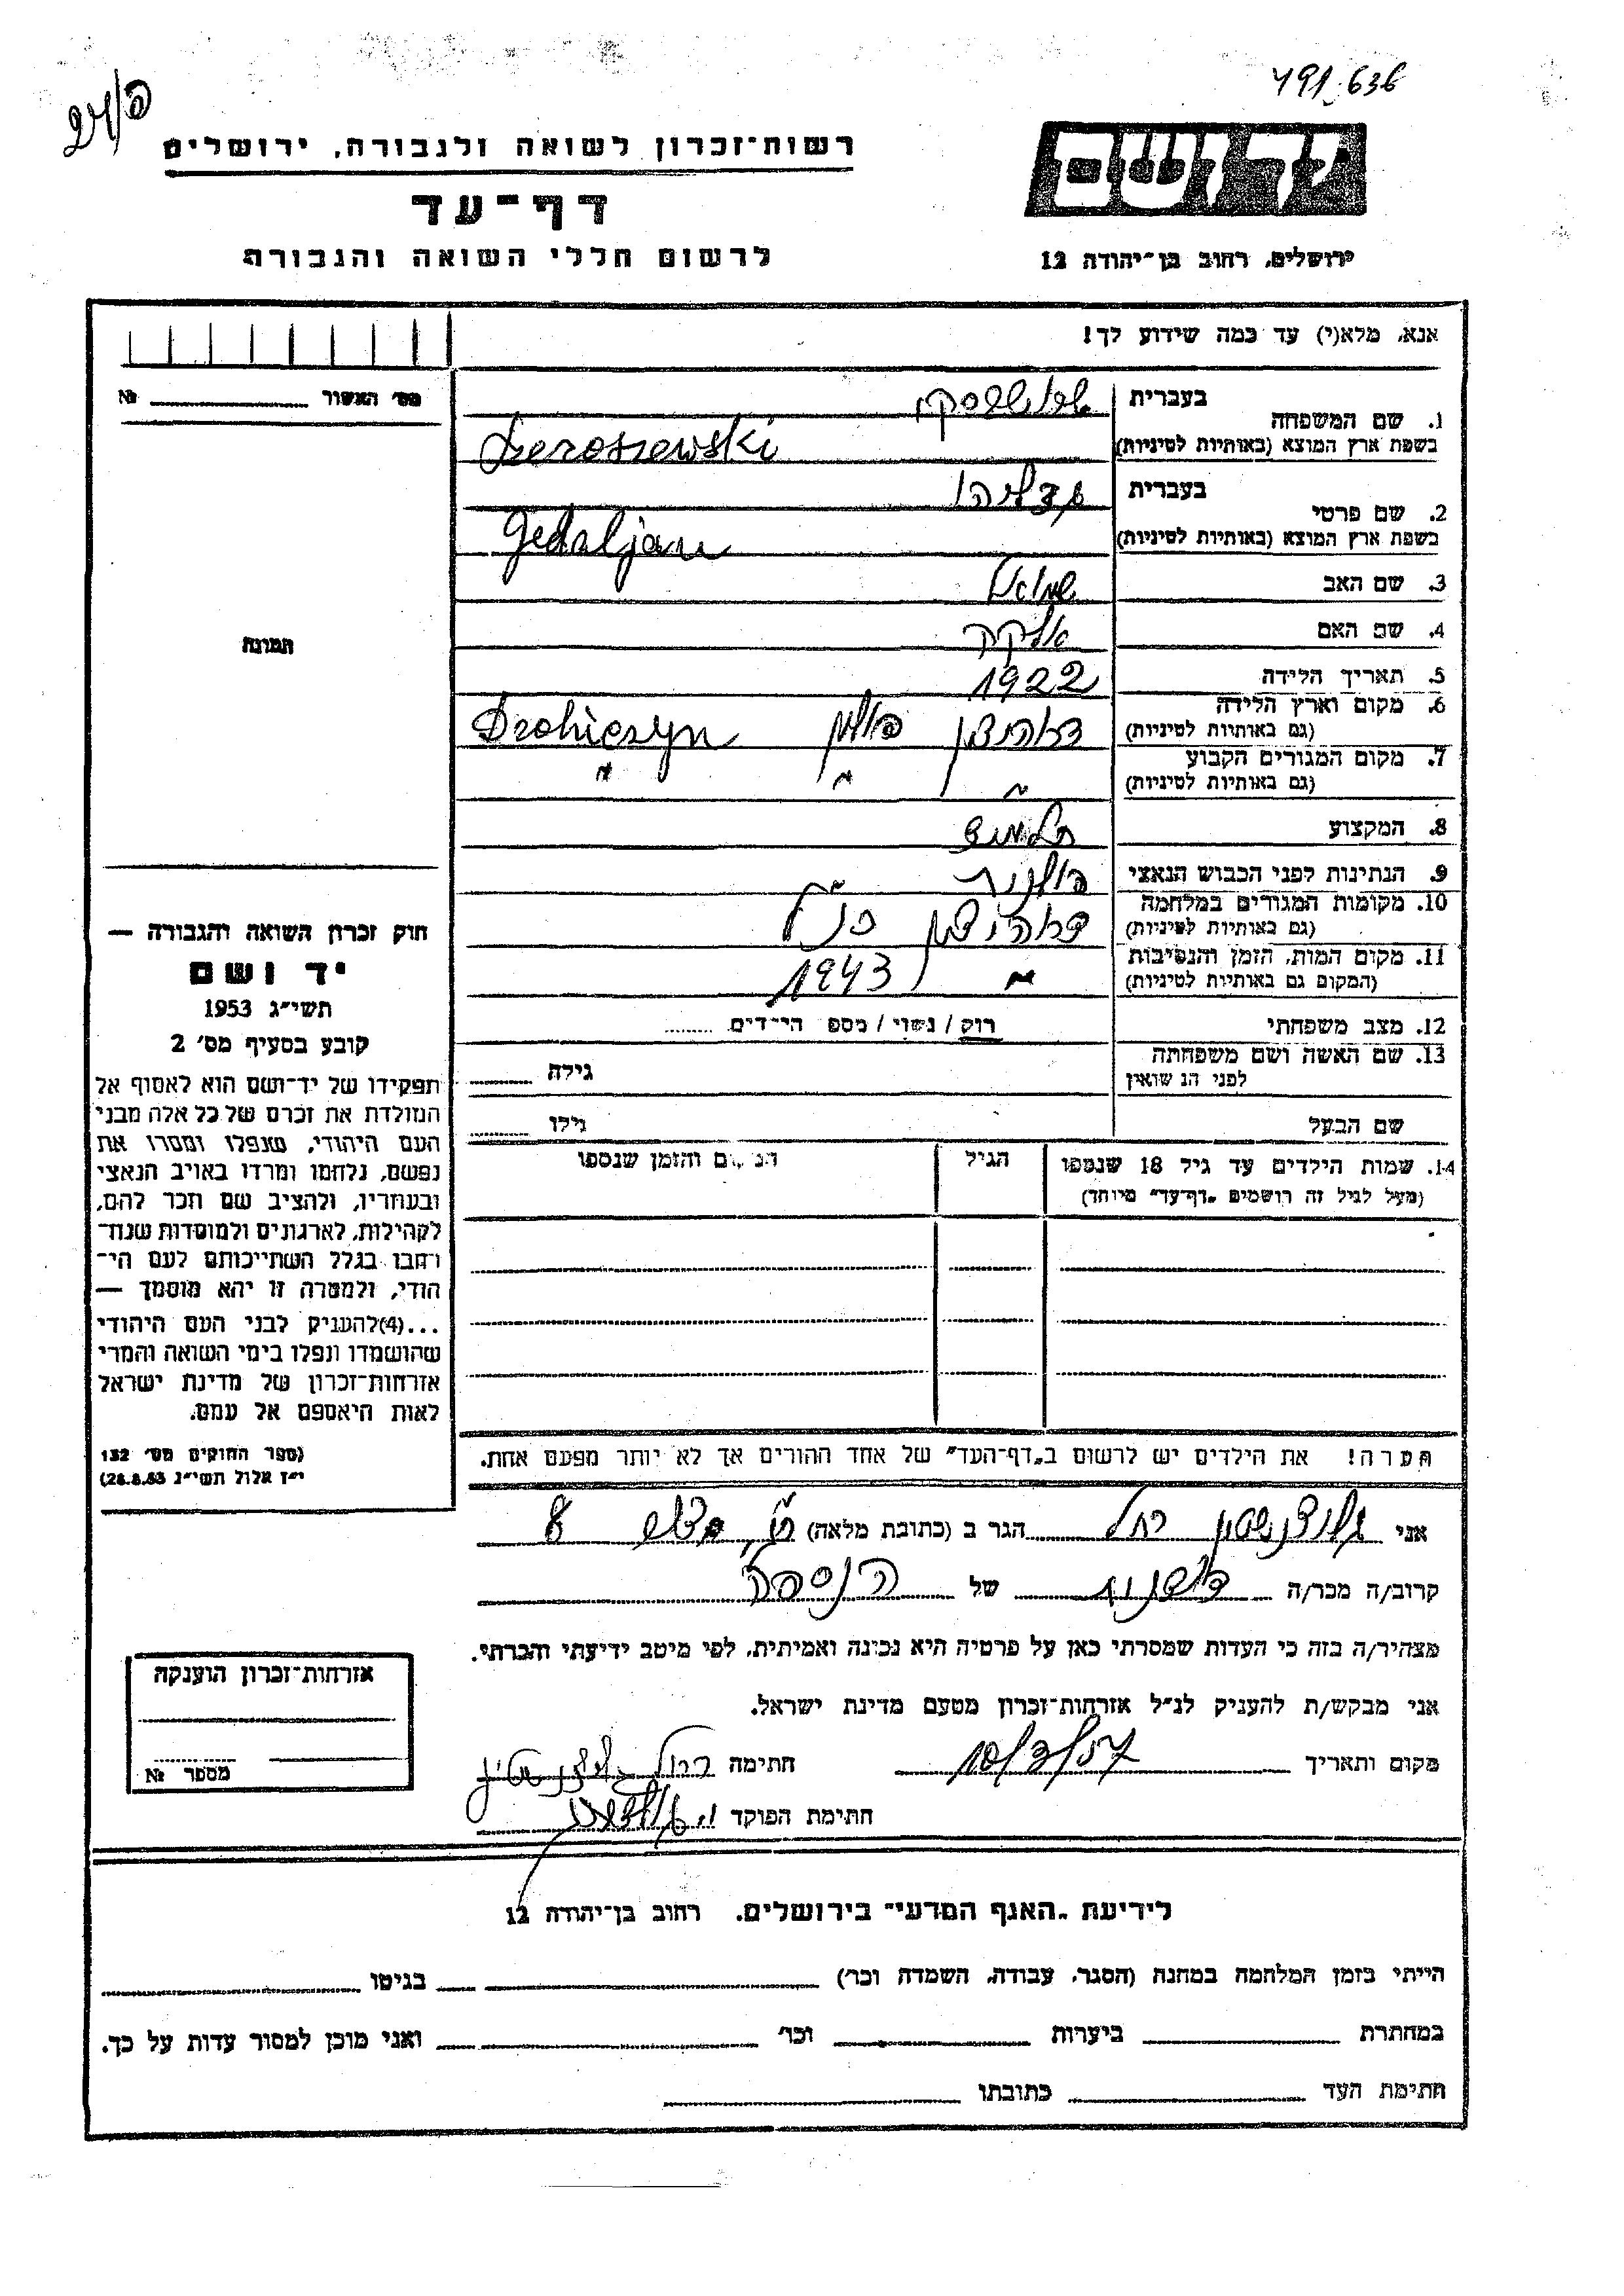 491.636
24/פ
רשות־זכרון לשואה ולגבורה, ירושלים
יד ושם
דף־עד
לרשום חללי השואה והגבורה
ירושלים, רחוב בן־יהודה 12
אנא, מלא(י) עד כמה שידוע לך!
מס׳ האשור №
1. שם המשפחה בעברית
בשפת ארץ המוצא (באותיות לטיניות)
2. שם פרטי בעברית גדליהו
בשפת ארץ המוצא (באותיות לטיניות)
3. שם האב שמואל
4. שם האם
5. תאריך הלידה 1922
6. מקום וארץ הלידה פולין Drohiczyn
(גם באותיות לטיניות)
7. מקום המגורים הקבוע " " "
(גם באותיות לטיניות)
8. המקצוע
9. הנתינות לפני הכבוש הנאצי פולנית
10. מקומות המגורים במלחמה כנ״ל
(גם באותיות לטיניות)
11. מקום המות, הזמן והנסיבות " 1943
(המקום גם באותיות לטיניות)
12. מצב משפחתי רוק / נשוי / מספ הי־דים
13. שם האשה ושם משפחתה
לפני הנשואין גילה
שם הבעל גילו
14. שמות הילדים עד גיל 18 שנספו הגיל המקום והזמן שנספו
(מעל לגיל זה רושמים „דף־עד״ מיוחד)
הערה! את הילדים יש לרשום ב„דף־העד״ של אחד ההורים אך לא יותר מפעם אחת.
תמונה
חוק זכרון השואה והגבורה —
יד ושם
תשי״ג 1953
קובע בסעיף מס׳ 2
תפקידו של יד־ושם הוא לאסוף אל
המולדת את זכרם של כל אלה מבני
העם היהודי, שנפלו ומסרו את
נפשם, נלחמו ומרדו באויב הנאצי
ובעוזריו, ולהציב שם וזכר להם,
לקהילות, לארגונים ולמוסדות שנח־
רחבו בגלל השתייכותם לעם הי־
הודי, ולמטרה זו יהא מוסמך —
...(4)להעניק לבני העם היהודי
שהושמדו ונפלו בימי השואה והמרי
אזרחות־זכרון של מדינת ישראל
לאות היאספם אל עמם.
(ספר החוקים מס׳ 132
י״ז אלול תשי״ג 28.8.53)
אני רחל הגר ב (כתובת מלאה) 8
קרוב/ה מכר/ה של הנספה
מצהיר/ה בזה כי העדות שמסרתי כאן על פרטיה היא נכונה ואמיתית, לפי מיטב ידיעתי והכרתי.
אני מבקש/ת להעניק לנ״ל אזרחות־זכרון מטעם מדינת ישראל.
מקום ותאריך 10/3/57 חתימה רחל
חתימת הפוקד
אזרחות־זכרון הוענקה
מספר №
לידיעת „האגף המדעי״ בירושלים, רחוב בן־יהודה 12
הייתי בזמן המלחמה במחנה (הסגר, עבודה, השמדה וכו׳) בגיטו
במחתרת ביערות וכו׳ ואני מוכן למסור עדות על כך.
חתימת העד כתובתו